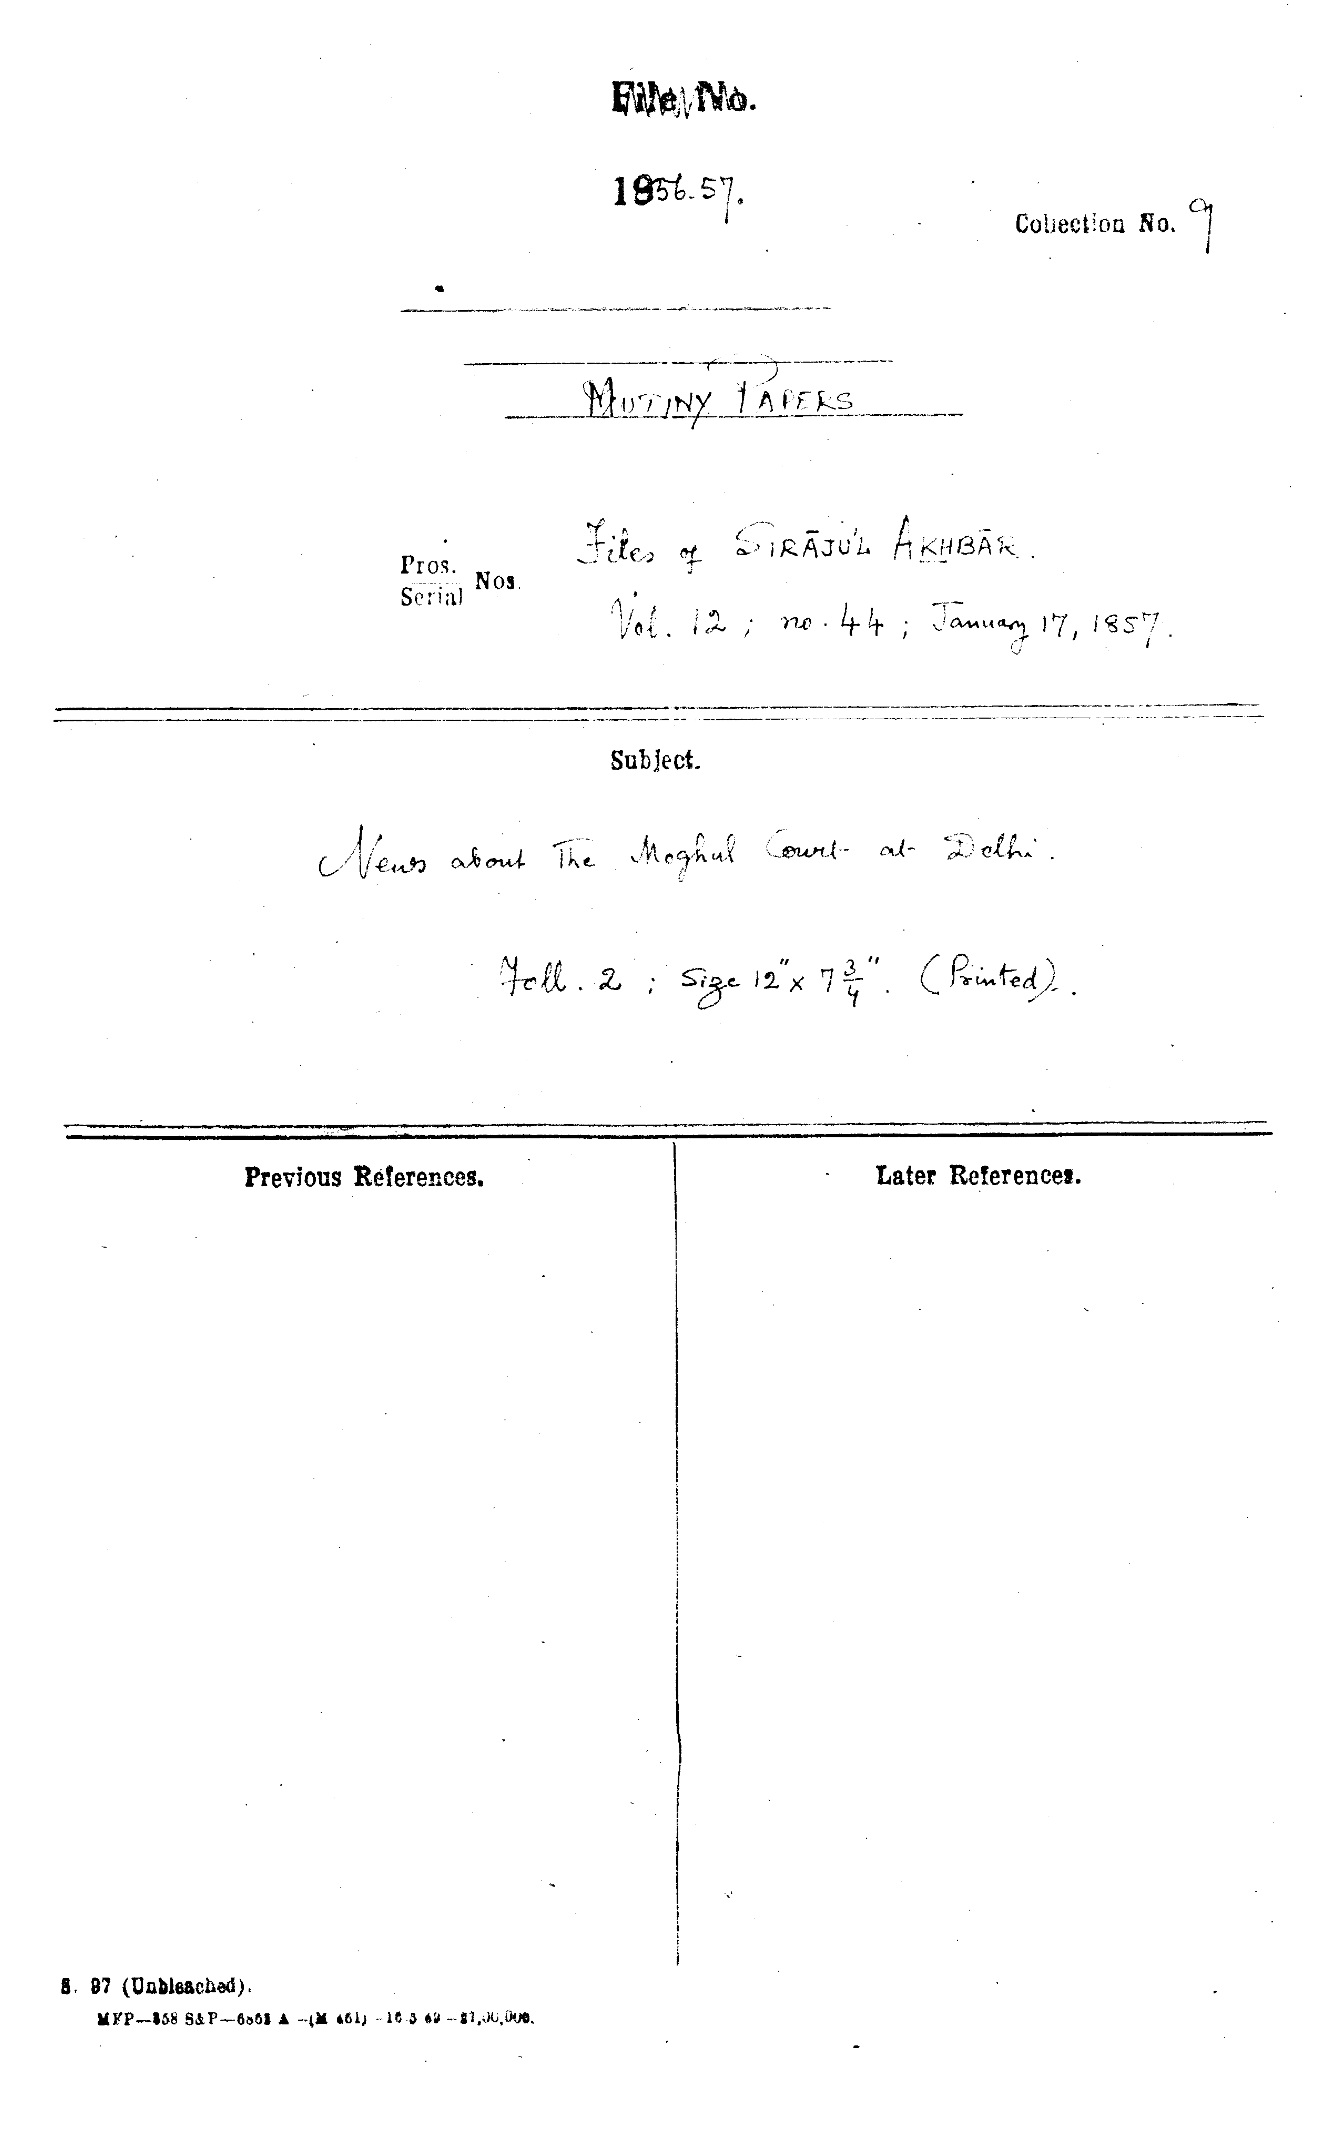 File No.
1856-57.
Collection No. 9
MUTINY PAPERS
Pros.
Serial Nos.
Files of SIRĀJU'L AKHBĀR.
Vol. 12 ; no. 44 ; January 17, 1857.
Subject.
News about The Moghul Court at Delhi.
Foll. 2 ; Size 12" x 7 3/4". (Printed).
Previous References.
Later References.
S. 97 (Unbleached).